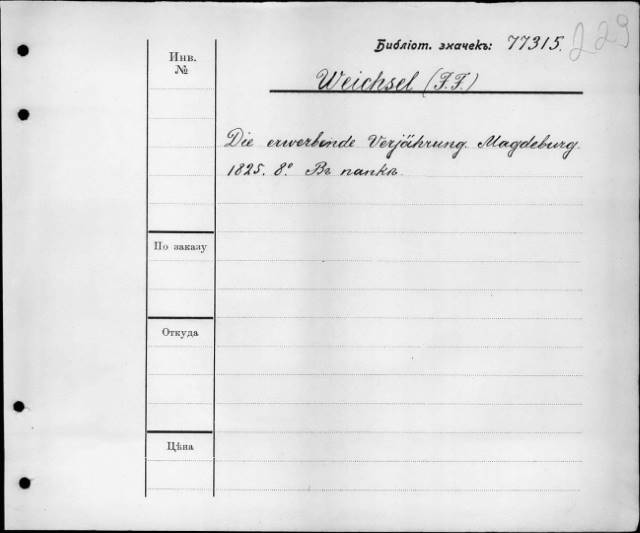 Библіот. значекъ: 77315.
229
Инв. №
Weichsel (F. F.)
Die erwerbende Verjährung. Magdeburg.
1825. 8º. Въ папкѣ.
По заказу
Откуда
Цѣна